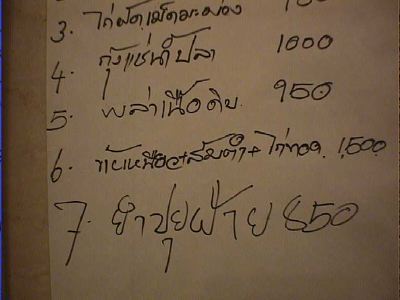 3. ไก่ผัดเม็ดมะม่วง
4. กุ้งแช่น้ำปลา 1000
5. พล่าเนื้อดิบ 950
6. ข้าวเหนียว+ส้มตำ+ไก่ทอด 1,500
7. ยำปุยฝ้าย 850